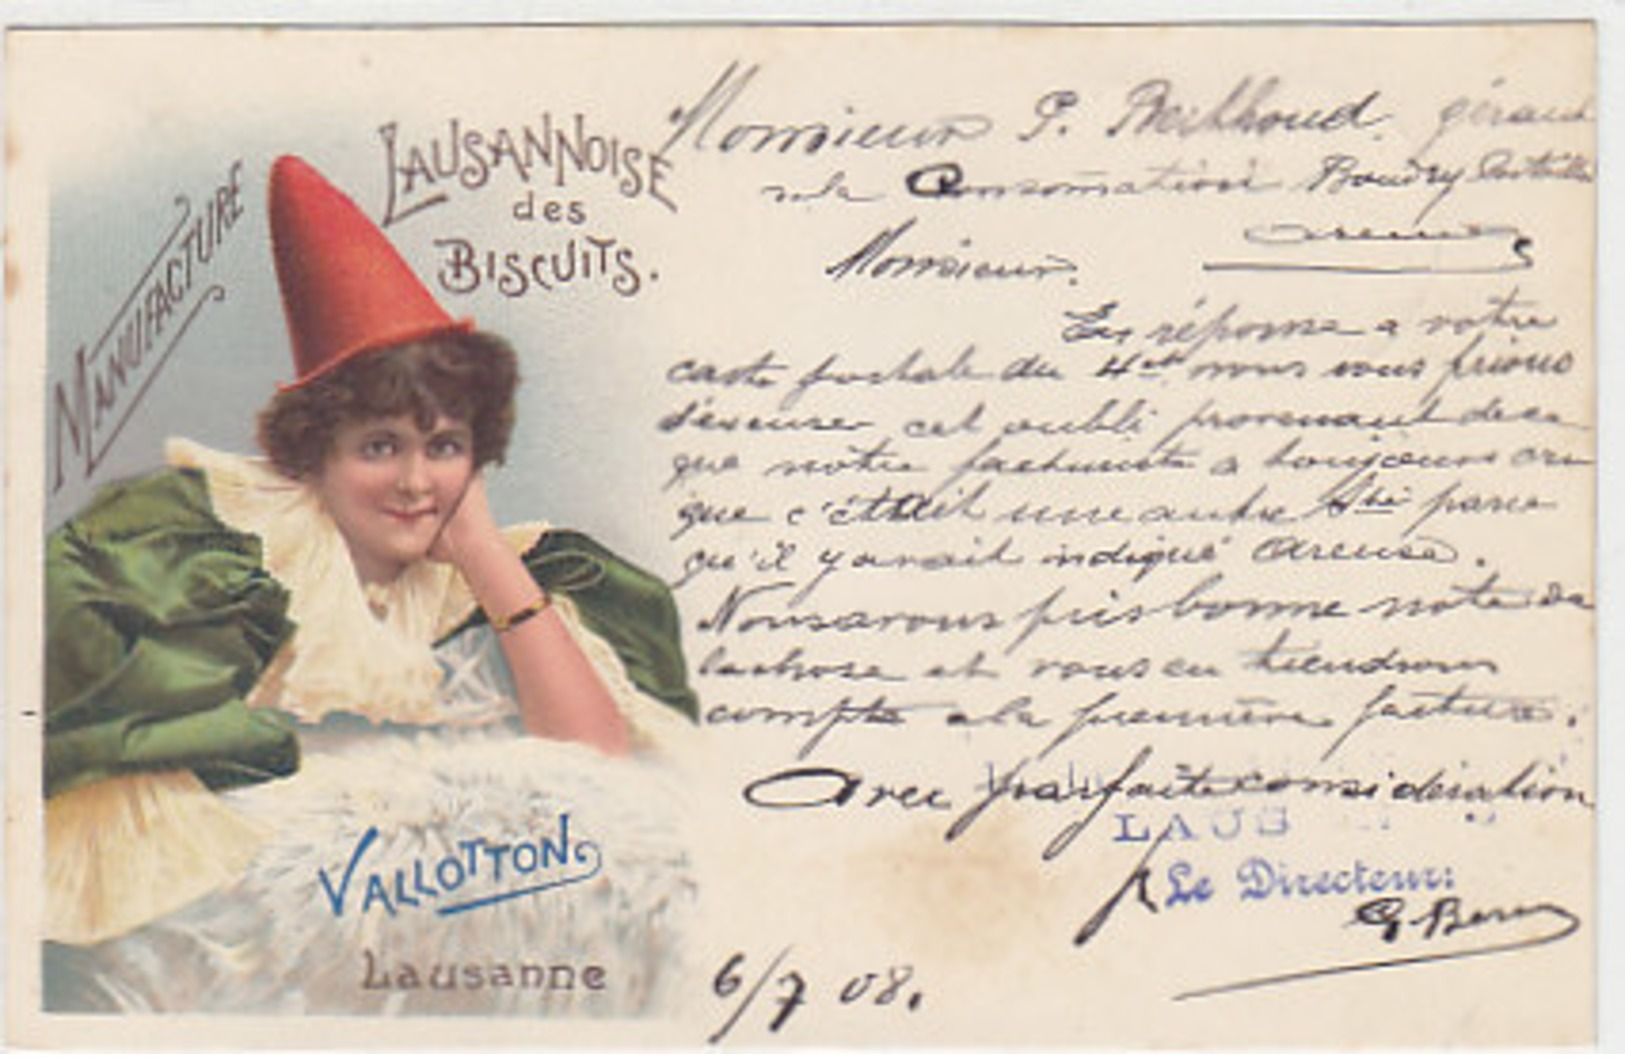 MANUFACTURE
LAUSANNOISE
des
BISCUITS.
VALLOTTON
Lausanne
Monsieur P. Berthoud. gérant
de la Consommation Boudry Cortaillod
Areuse
Monsieur.
En réponse a votre
carte postale du 4ct nous vous prions
d'excuser cet oubli provenant de ce
que notre facturiste a toujours cru
que c'était une autre Sté parce
qu'il y avait indiqué Areuse.
Nous avons pris bonne note de
la chose et vous en tiendrons
compte a la première facture.
Avec parfaite consideration
LAUS
Le Directeur:
6/7 08.